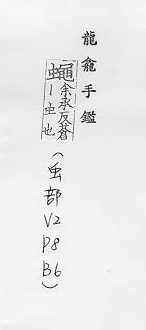 龍龕手鑑
蠅余承反蒼
丨虫也
(虫部V2P8B6)